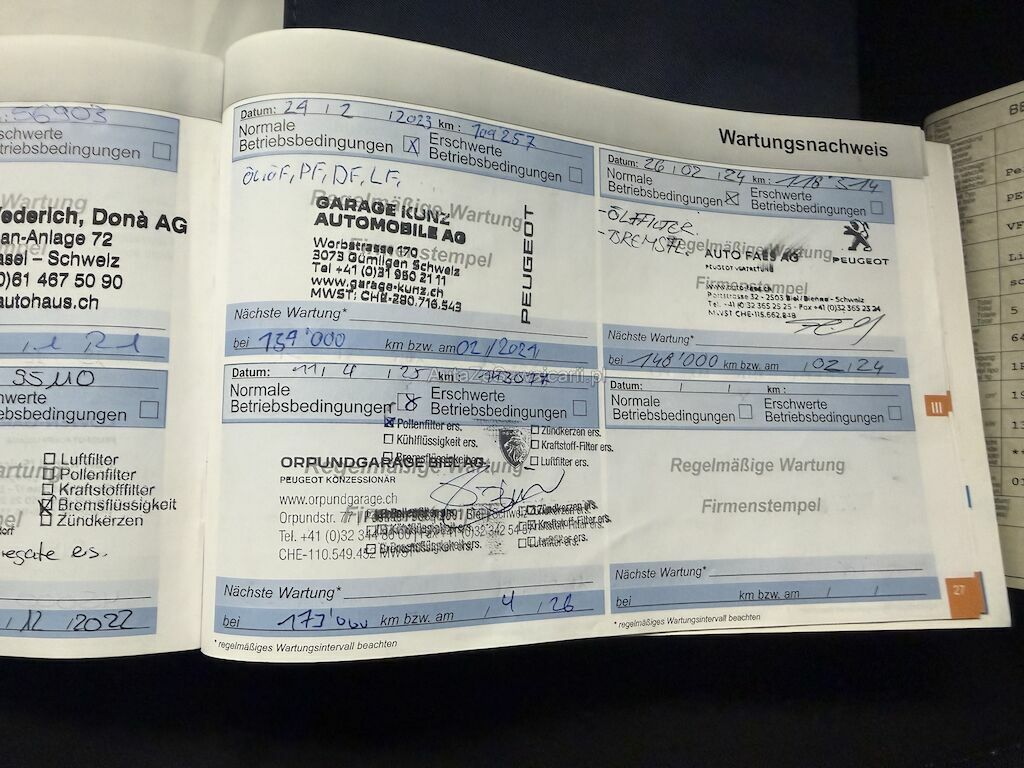 :56903
schwerte
Betriebsbedingungen
ederich, Donà AG
an-Anlage 72
asel – Schweiz
0)61 467 50 90
autohaus.ch
35110
werte
Betriebsbedingungen
Luftfilter
Pollenfilter
Kraftstofffilter
Bremsflüssigkeit
Zündkerzen
12 2022
Wartungsnachweis
Datum: 24 / 2 / 2023 km: 109257
Normale Betriebsbedingungen X
Erschwerte Betriebsbedingungen
PF, DF, LF,
Regelmäßige Wartung
Firmenstempel
GARAGE KUNZ
AUTOMOBILE AG
Worbstrasse 170
3073 Gümligen Schweiz
Tel +41 (0)31 950 21 11
www.garage-kunz.ch
MWST: CHE-280.716.543
PEUGEOT
Nächste Wartung*
bei 139'000 km bzw. am 02/2024
Datum: 26 / 02 / 24 km: 118'514
Normale Betriebsbedingungen X
Erschwerte Betriebsbedingungen
-ÖLFILTER
-BREMSFL.
Regelmäßige Wartung
Firmenstempel
AUTO FAES AG
PEUGEOT VERTRETUNG
PEUGEOT
Portstrasse 32 - 2503 Biel/Bienne - Schweiz
Tel. +41 (0)32 365 25 25 - Fax +41 (0)32 365 25 24
MWST CHE-115.662.848
Nächste Wartung*
bei 148'000 km bzw. am / 02 / 24
Datum: 11 / 4 / 25 km: 143077
Normale Betriebsbedingungen
Erschwerte Betriebsbedingungen
Pollenfilter ers.
Kühlflüssigkeit ers.
Bremsflüssigkeit ers.
Zündkerzen ers.
Kraftstoff-Filter ers.
Luftfilter ers.
Regelmäßige Wartung
ORPUNDGARAGE BIEL AG
PEUGEOT KONZESSIONÄR
www.orpundgarage.ch
Orpundstr.
Tel. +41 (0)32
CHE-110.549.452 MWST
Nächste Wartung*
bei 173'000 km bzw. am / 4 / 26
* regelmäßiges Wartungsintervall beachten
Datum: / / km:
Normale Betriebsbedingungen
Erschwerte Betriebsbedingungen
Regelmäßige Wartung
Firmenstempel
Nächste Wartung*
bei km bzw. am / /
* regelmäßiges Wartungsintervall beachten
III
27